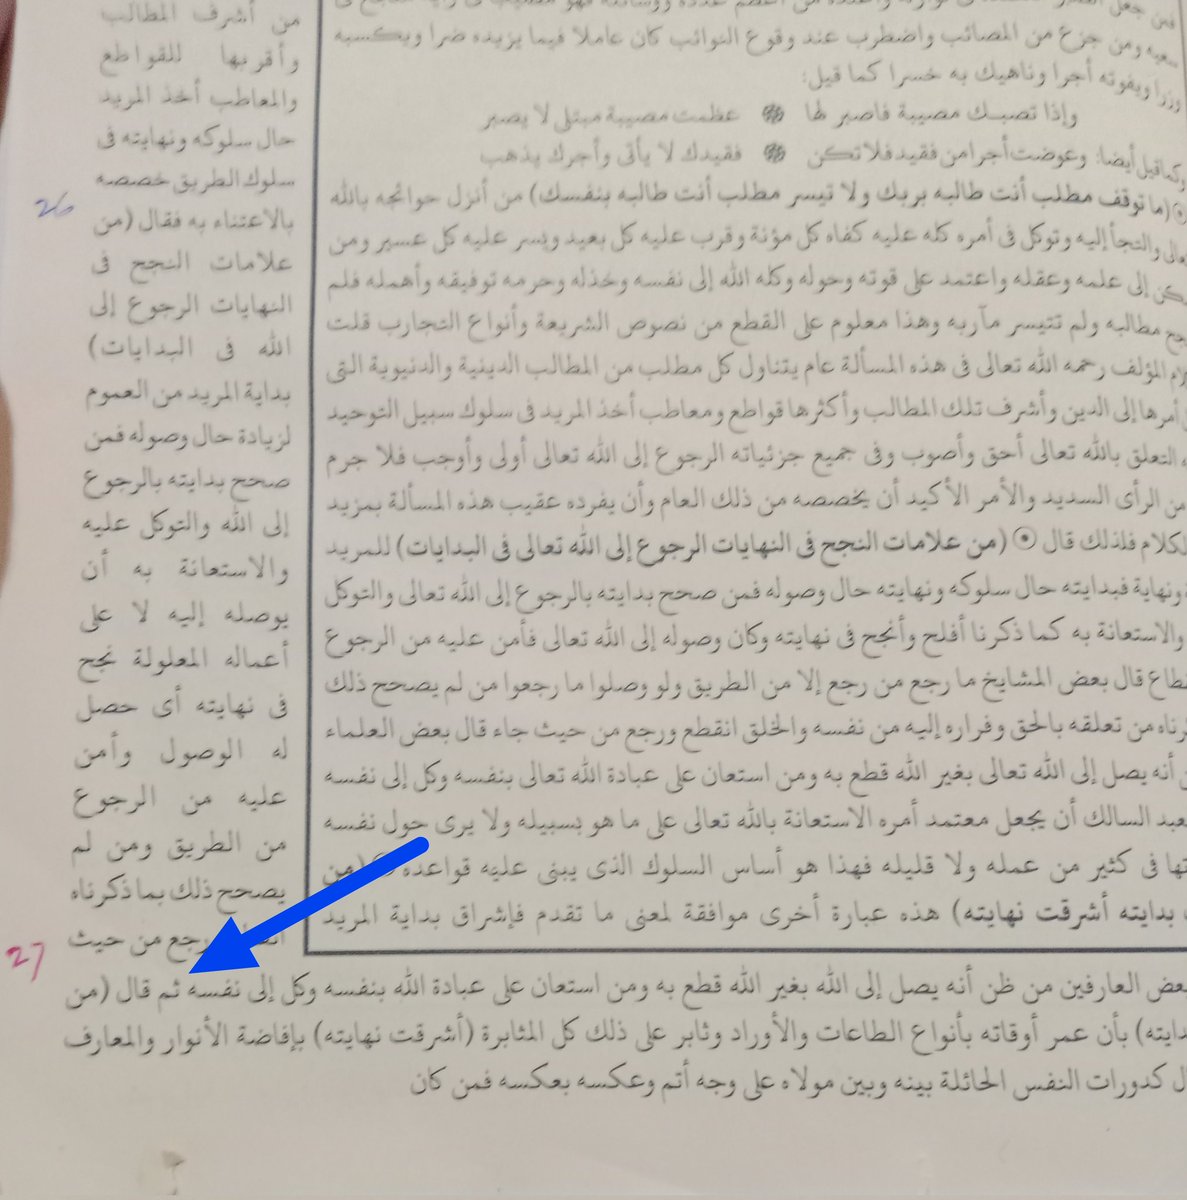 سعيه ومن جزع من المصائب واضطرب عند وقوع النوائب كان عاملا فيما يزيده ضرا ويكسبه
وزرا ويفوته أجرا وناهيك به خسرا كما قيل:
وإذا تصبك مصيبة فاصبر لها عظمت مصيبة مبتلى لا يصبر
وكما قيل أيضا: وعوضت أجرا من فقيد فلا تكن فقيدك لا يأتى وأجرك يذهب
(ما توقف مطلب أنت طالبه بربك ولا تيسر مطلب أنت طالبه بنفسك) من أنزل حوائجه بالله
والتجأ إليه وتوكل فى أمره كله عليه كفاه كل مؤنة وقرب عليه كل بعيد ويسر عليه كل عسير ومن
إلى علمه وعقله واعتمد على قوته وحوله وكله الله إلى نفسه وخذله وحرمه توفيقه وأهمله فلم
مطالبه ولم تتيسر مآربه وهذا معلوم على القطع من نصوص الشريعة وأنواع التجارب قلت
المؤلف رحمه الله تعالى فى هذه المسألة عام يتناول كل مطلب من المطالب الدينية والدنيوية التى
أمرها إلى الدين وأشرف تلك المطالب وأكثرها قواطع ومعاطب أخذ المريد فى سلوك سبيل التوحيد
التعلق بالله تعالى أحق وأصوب وفى جميع جزئياته الرجوع إلى الله تعالى أولى وأوجب فلا جرم
من الرأى السديد والأمر الأكيد أن يخصصه من ذلك العام وأن يفرده عقيب هذه المسألة بمزيد
الكلام فلذلك قال (من علامات النجح فى النهايات الرجوع إلى الله تعالى فى البدايات) للمريد
ونهاية فبدايته حال سلوكه ونهايته حال وصوله فمن صحح بدايته بالرجوع إلى الله تعالى والتوكل
والاستعانة به كما ذكرنا أفلح وأنجح فى نهايته وكان وصوله إلى الله تعالى فأمن عليه من الرجوع
قال بعض المشايخ ما رجع من رجع إلا من الطريق ولو وصلوا ما رجعوا من لم يصحح ذلك
من تعلقه بالحق وفراره إليه من نفسه والخلق انقطع ورجع من حيث جاء قال بعض العلماء
أنه يصل إلى الله تعالى بغير الله قطع به ومن استعان على عبادة الله تعالى بنفسه وكل إلى نفسه
السالك أن يجعل معتمد أمره الاستعانة بالله تعالى على ما هو بسبيله ولا يرى حول نفسه
فى كثير من عمله ولا قليله فهذا هو أساس السلوك الذى يبنى عليه قواعده (من
بدايته أشرقت نهايته) هذه عبارة أخرى موافقة لمعنى ما تقدم فإشراق بداية المريد
من أشرف المطالب
وأقربها للقواطع
والمعاطب أخذ المريد
حال سلوكه ونهايته فى
سلوك الطريق خصصه
26
بالاعتناء به فقال (من
علامات النجح فى
النهايات الرجوع إلى
الله فى البدايات)
بداية المريد من العموم
لزيادة حال وصوله فمن
صحح بدايته بالرجوع
إلى الله والتوكل عليه
والاستعانة به أن
يوصله إليه لا على
أعماله المعلولة نجح
فى نهايته أى حصل
له الوصول وأمن
عليه من الرجوع
من الطريق ومن لم
يصحح ذلك بما ذكرناه
رجع من حيث
27
العارفين من ظن أنه يصل إلى الله بغير الله قطع به ومن استعان على عبادة الله بنفسه وكل إلى نفسه ثم قال (من
بأن عمر أوقاته بأنواع الطاعات والأوراد وثابر على ذلك كل المثابرة (أشرقت نهايته) بإفاضة الأنوار والمعارف
كدورات النفس الحائلة بينه وبين مولاه على وجه أتم وعكسه بعكسه فمن كان